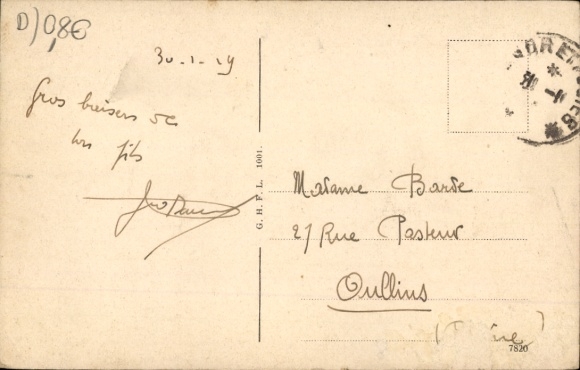 D) 0,8€
30-1-29
Gros baisers de
ton fils
G. H. F. L. 1001.
Madame Barde
27 Rue Pasteur
Oullins
7820